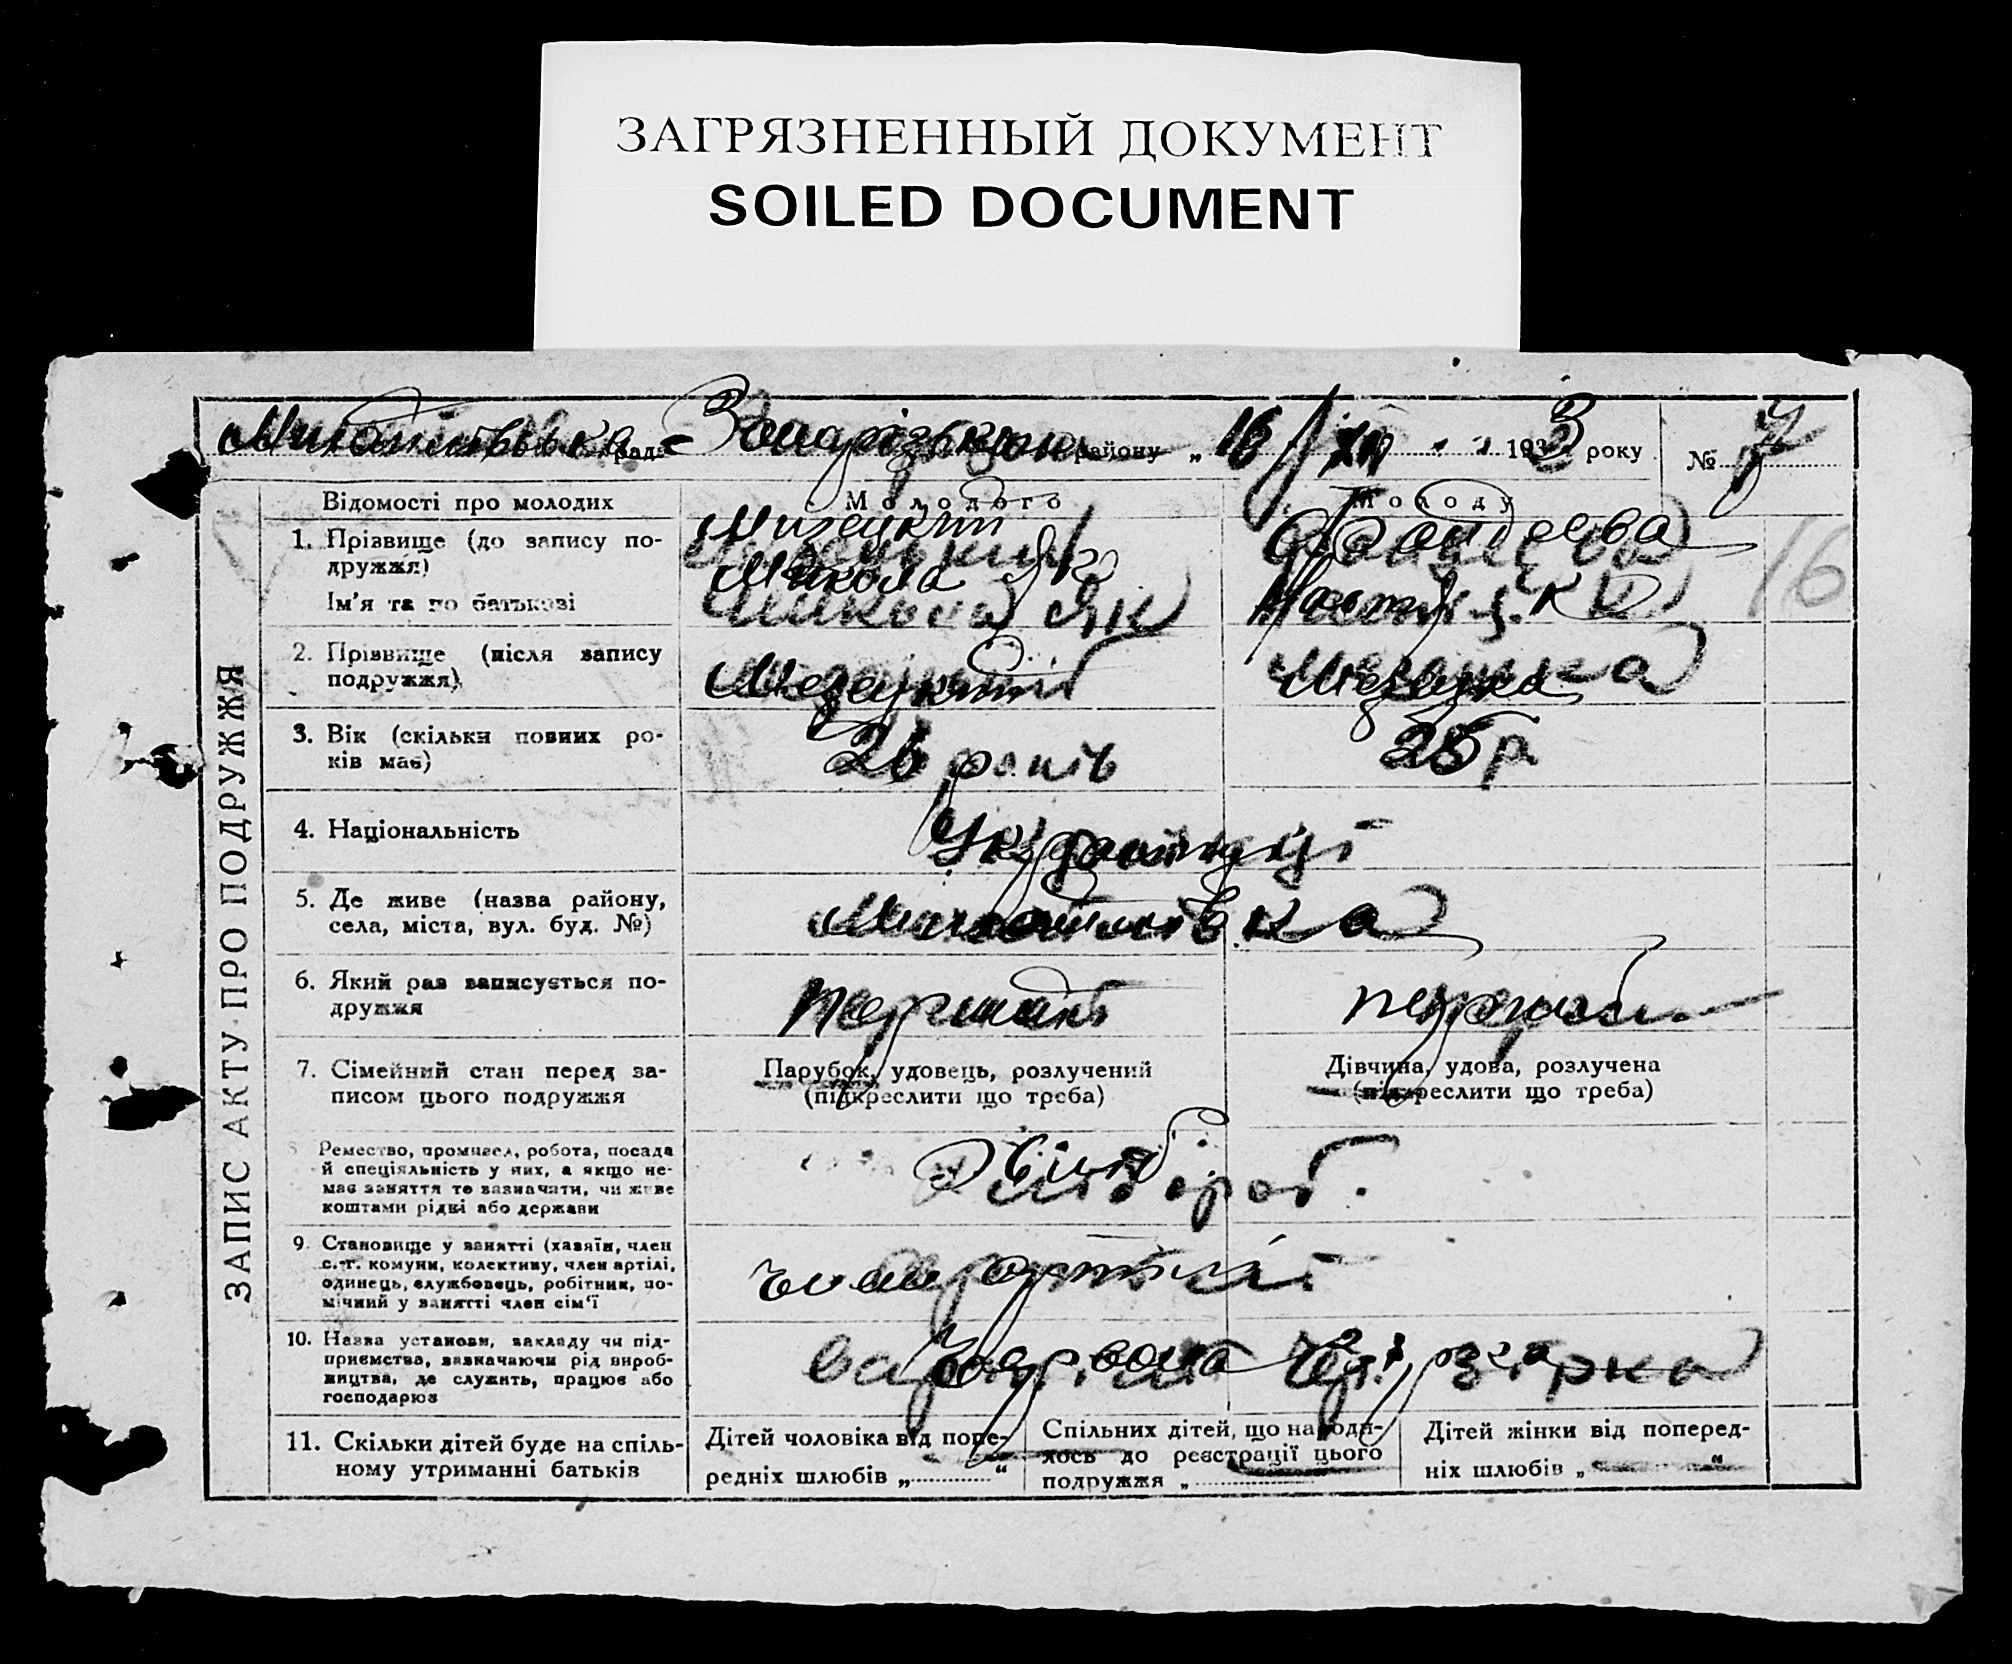 ЗАГРЯЗНЕННЫЙ ДОКУМЕНТ
SOILED DOCUMENT
рада району „16 / XII 1933 року № 7
ЗАПИС АКТУ ПРО ПОДРУЖЖЯ
Відомості про молодих Молодого Молоду
1. Прізвище (до запису по-
дружжя)
Ім'я та по батькові Микола Як
16
2. Прізвище (після запису
подружжя) Мезецкий Мезецка
3. Вік (скільки повних ро-
ків має) 26 років 25 р
4. Національність Українці
5. Де живе (назва району,
села, міста, вул. буд. №)
6. Який раз записується по-
дружжя перший
7. Сімейний стан перед за-
писом цього подружжя
Парубок, удовець, розлучений
(підкреслити що треба)
Дівчина, удова, розлучена
(підкреслити що треба)
8 Ремество, промисел, робота, посада
й спеціяльність у них, а якщо не-
має заняття то зазначити, чи живе
коштами рідні або держави
9. Становище у занятті (хазяїн, член
с.-г. комуни, колективу, член артілі,
одинець, службовець, робітник, по-
мічний у занятті член сім'ї
член артілі
10. Назва установи, закладу чи під-
приємства, зазначаючи рід вироб-
ництва, де служить, працює або
господарює
зірка
11. Скільки дітей буде на спіль-
ному утриманні батьків
Дітей чоловіка від попе-
редніх шлюбів „ “
Спільних дітей, що народи-
лось до реєстрації цього
подружжя „
Дітей жінки від поперед-
ніх шлюбів „ “